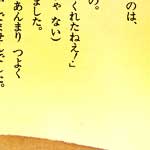 のは、
の。
くれたねえ!」
ゃ ない)
ました。
あんまり つよく